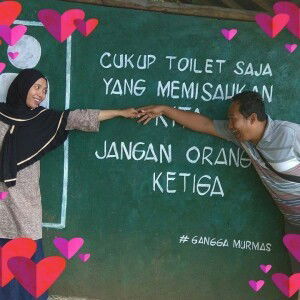 CUKUP TOILET SAJA
YANG MEMISAHKAN
KITA
JANGAN ORANG
KETIGA
# GANGGA MURMAS